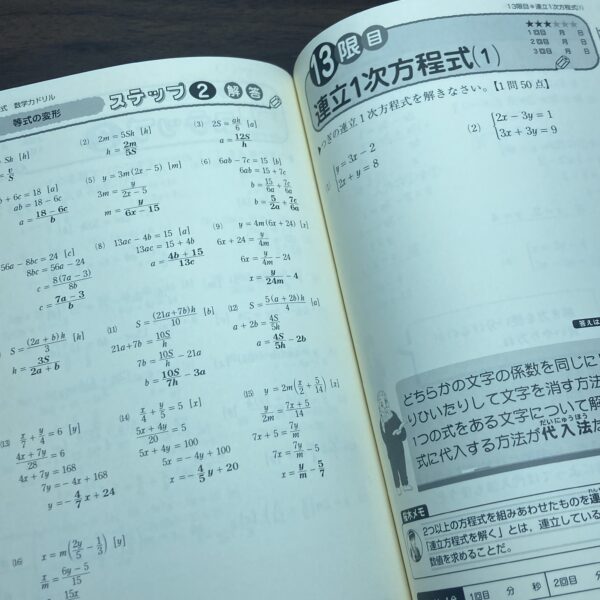 式 数学力ドリル
等式の変形
ステップ2 解答
(2) 2m = 5Sh [h]
h = 2m/5S
(3) 2S = ah/6 [a]
a = 12S/h
b + 6c = 18 [a]
ab = 18 − 6c
a = 18 − 6c/b
(5) y = 3m(2x − 5) [m]
3m = y/2x − 5
m = y/6x − 15
(6) 6ab − 7c = 15 [b]
6ab = 15 + 7c
b = 15/6a + 7c/6a
b = 5/2a + 7c/6a
56a − 8bc = 24 [c]
8bc = 56a − 24
c = 8(7a − 3)/8b
c = 7a − 3/b
(8) 13ac − 4b = 15 [a]
13ac = 15 + 4b
a = 4b + 15/13c
(9) y = 4m(6x + 24) [x]
6x + 24 = y/4m
6x = y/4m − 24
x = y/24m − 4
S = (2a + b)h/3 [h]
h = 3S/2a + b
(11) S = (21a + 7b)h/10 [b]
21a + 7b = 10S/h
7b = 10S/h − 21a
b = 10S/7h − 3a
(12) S = 5(a + 2b)h/4 [a]
a + 2b = 4S/5h
a = 4S/5h − 2b
(13) x/7 + y/4 = 6 [y]
4x + 7y/28 = 6
4x + 7y = 168
7y = −4x + 168
y = −4/7 x + 24
(14) x/4 + y/5 = 5 [x]
5x + 4y/20 = 5
5x + 4y = 100
5x = −4y + 100
x = −4/5 y + 20
(15) y = 2m(x/2 + 5/14) [x]
y/2m = 7x + 5/14
7x + 5 = 7y/m
7x = 7y/m − 5
x = y/m − 5/7
(16) x = m(2y/5 − 1/3) [y]
x/m = 6y − 5/15
15x
13限目●連立1次方程式(1)
13限目
連立1次方程式(1)
★★★★★★
1回目 月 日
2回目 月 日
3回目 月 日
つぎの連立1次方程式を解きなさい。【1問50点】
y = 3x − 2
2x + y = 8
(2) 2x − 3y = 1
3x + 3y = 9
答えは
どちらかの文字の係数を同じに
りひいたりして文字を消す方法
1つの式をある文字について解
式に代入する方法が代入法だ
だいにゅうほう
メモ
2つ以上の方程式を組みあわせたものを連
「連立方程式を解く」とは、連立している
数値を求めることだ。
1回目 分 秒 2回目 分